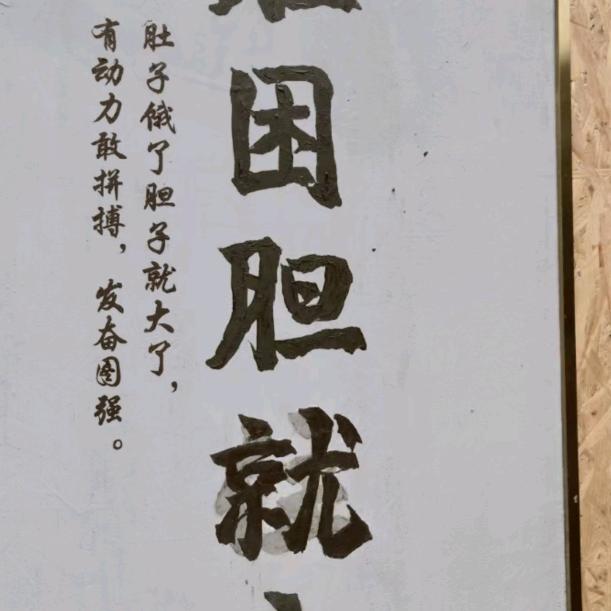 困胆就
肚子饿了胆子就大了，
有动力敢拼搏，发奋图强。